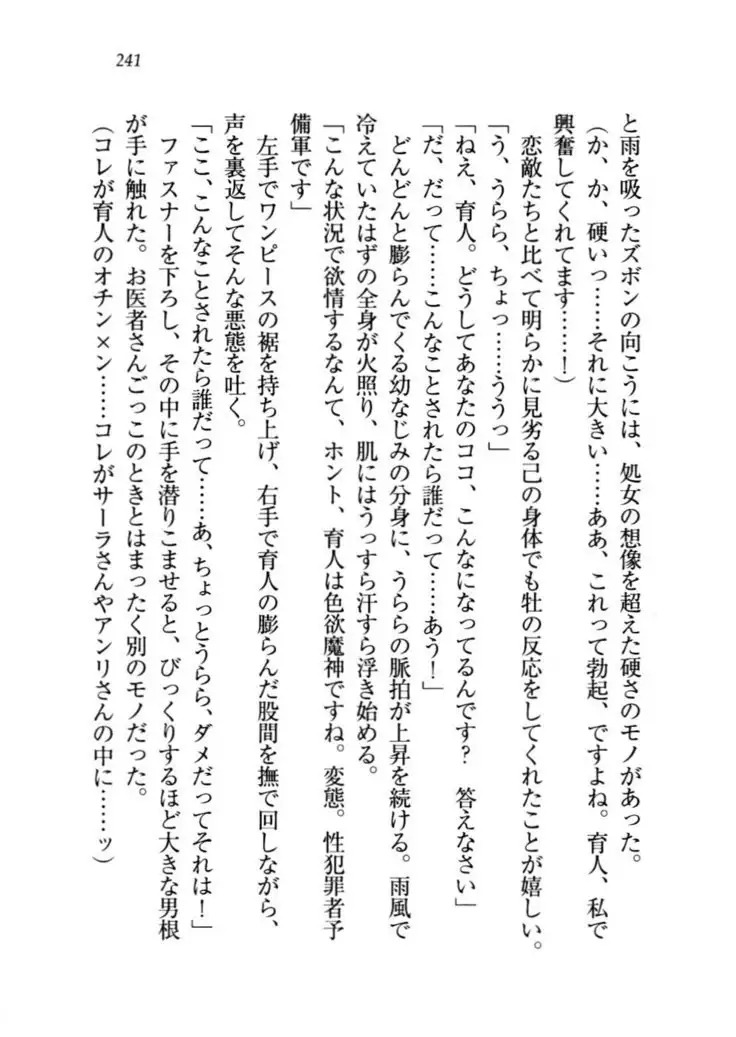 241
と雨を吸ったズボンの向こうには、処女の想像を超えた硬さのモノがあった。
(か、か、硬いっ……それに大きい……ああ、これって勃起、ですよね。育人、私で
興奮してくれてます……！)
恋敵たちと比べて明らかに見劣る己の身体でも牡の反応をしてくれたことが嬉しい。
「う、うらら、ちょっ……ううっ」
「ねえ、育人。どうしてあなたのココ、こんなになってるんです？　答えなさい」
「だ、だって……こんなことされたら誰だって……あう！」
どんどんと膨らんでくる幼なじみの分身に、うららの脈拍が上昇を続ける。雨風で
冷えていたはずの全身が火照り、肌にはうっすら汗すら浮き始める。
「こんな状況で欲情するなんて、ホント、育人は色欲魔神ですね。変態。性犯罪者予
備軍です」
左手でワンピースの裾を持ち上げ、右手で育人の膨らんだ股間を撫で回しながら、
声を裏返してそんな悪態を吐く。
「ここ、こんなことされたら誰だって……あ、ちょっとうらら、ダメだってそれは！」
ファスナーを下ろし、その中に手を潜りこませると、びっくりするほど大きな男根
が手に触れた。お医者さんごっこのときとはまったく別のモノだった。
(コレが育人のオチン×ン……コレがサーラさんやアンリさんの中に……ッ)